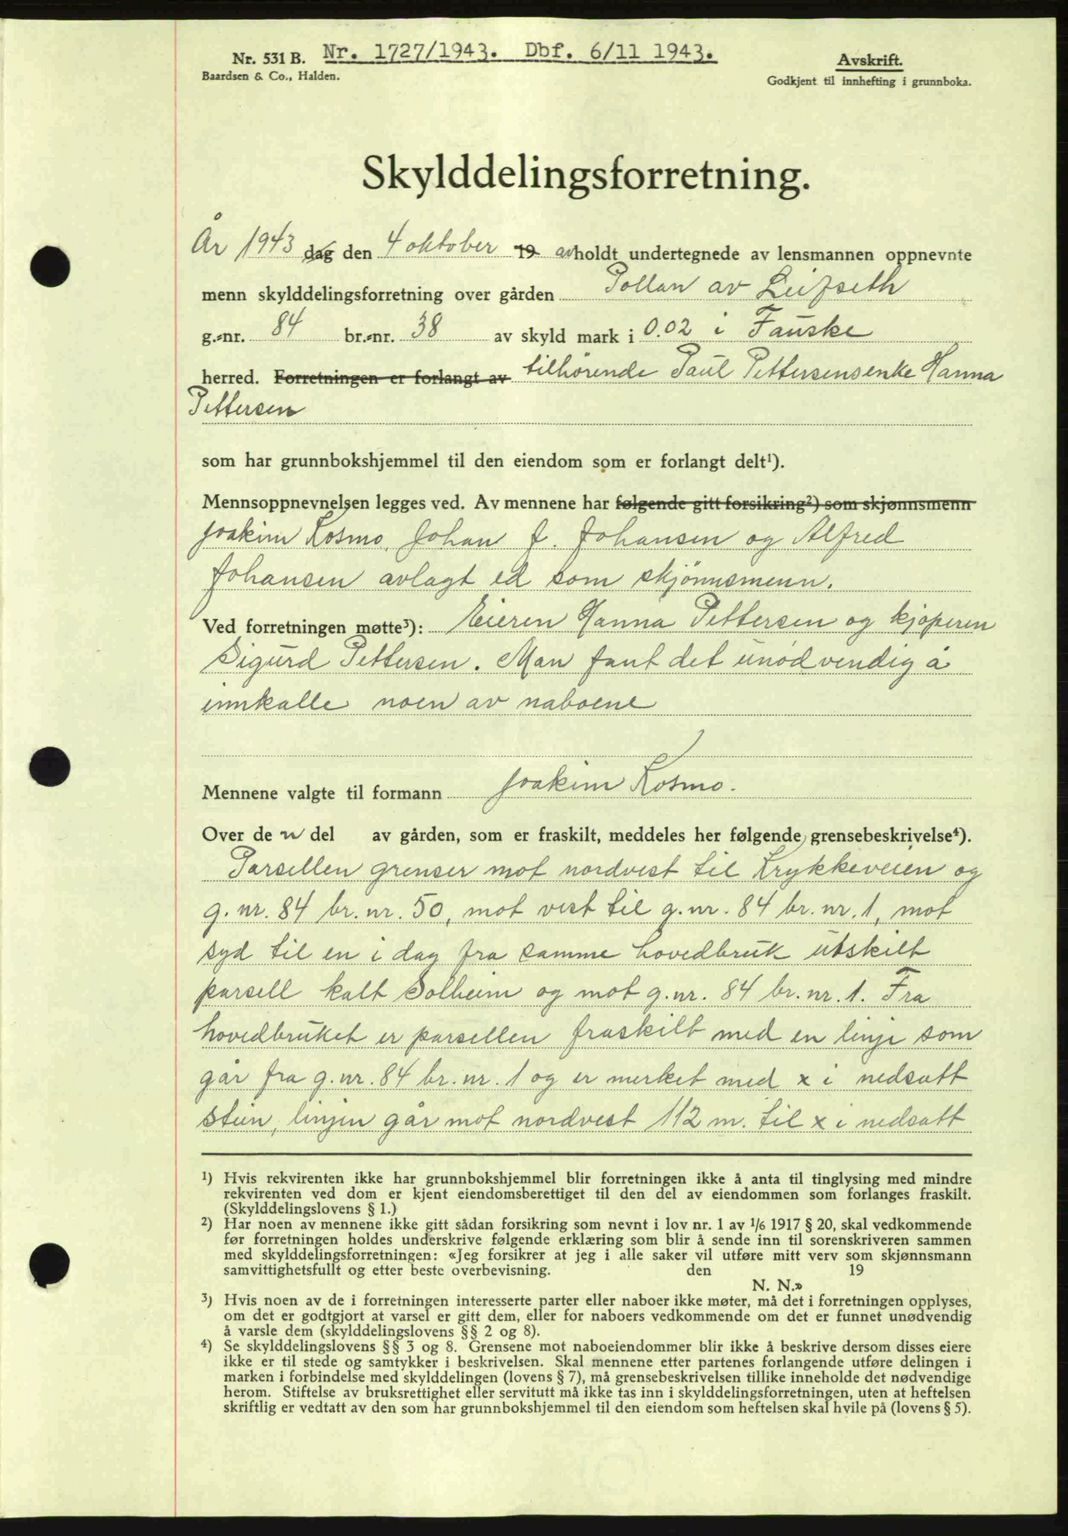 Nr. 531 B. Nr. 1727/1943. Dbf. 6/11 1943. Avskrift.
Baardsen & Co., Halden. Godkjent til innhefting i grunnboka.
Skylddelingsforretning.
År 1943 dag den 4 oktober 19 avholdt undertegnede av lensmannen oppnevnte
menn skylddelingsforretning over gården Pollan av Leifseth
g.-nr. 84 br.-nr. 38 av skyld mark i 0.02 i Fauske
herred. Forretningen er forlangt av tilhørende Paul Pettersens enke Hanna
Pettersen
som har grunnbokshjemmel til den eiendom som er forlangt delt¹).
Mennsoppnevnelsen legges ved. Av mennene har følgende gitt forsikring²) som skjønnsmenn
Joakim Kosmo, Johan J. Johansen og Alfred
Johansen avlagt ed som skjönnsmenn.
Ved forretningen møtte³): Eieren Hanna Pettersen og kjøperen
Sigurd Pettersen. Man fant det unödvendig å
innkalle noen av naboene
Mennene valgte til formann Joakim Kosmo.
Over de n del av gården, som er fraskilt, meddeles her følgende grensebeskrivelse⁴).
Parsellen grenser mot nordvest til Krykkeveien og
g. nr. 84 br. nr. 50, mot vest til g. nr. 84 br. nr. 1, mot
syd til en i dag fra samme hovedbruk utskilt
parsell kalt Solheim og mot g. nr. 84 br. nr. 1. Fra
hovedbruket er parsellen fraskilt med en linje som
går fra g. nr. 84 br. nr. 1 og er merket med x i nedsatt
stein, linjen går mot nordvest 112 m. til x i nedsatt
¹) Hvis rekvirenten ikke har grunnbokshjemmel blir forretningen ikke å anta til tinglysing med mindre
rekvirenten ved dom er kjent eiendomsberettiget til den del av eiendommen som forlanges fraskilt.
(Skylddelingslovens § 1.)
²) Har noen av mennene ikke gitt sådan forsikring som nevnt i lov nr. 1 av 1/6 1917 § 20, skal vedkommende
før forretningen holdes underskrive følgende erklæring som blir å sende inn til sorenskriveren sammen
med skylddelingsforretningen: «Jeg forsikrer at jeg i alle saker vil utføre mitt verv som skjønnsmann
samvittighetsfullt og etter beste overbevisning. den 19
N. N.»
³) Hvis noen av de i forretningen interesserte parter eller naboer ikke møter, må det i forretningen opplyses,
om det er godtgjort at varsel er gitt dem, eller for naboers vedkommende om det er funnet unødvendig
å varsle dem (skylddelingslovens §§ 2 og 8).
⁴) Se skylddelingslovens §§ 3 og 8. Grensene mot naboeiendommer blir ikke å beskrive dersom disses eiere
ikke er til stede og samtykker i beskrivelsen. Skal mennene etter partenes forlangende utføre delingen i
marken i forbindelse med skylddelingen (lovens § 7), må grensebeskrivelsen tillike inneholde det nødvendige
herom. Stiftelse av bruksrettighet eller servitutt må ikke tas inn i skylddelingsforretningen, uten at heftelsen
skriftlig er vedtatt av den som har grunnbokshjemmel til den eiendom som heftelsen skal hvile på (lovens § 5).